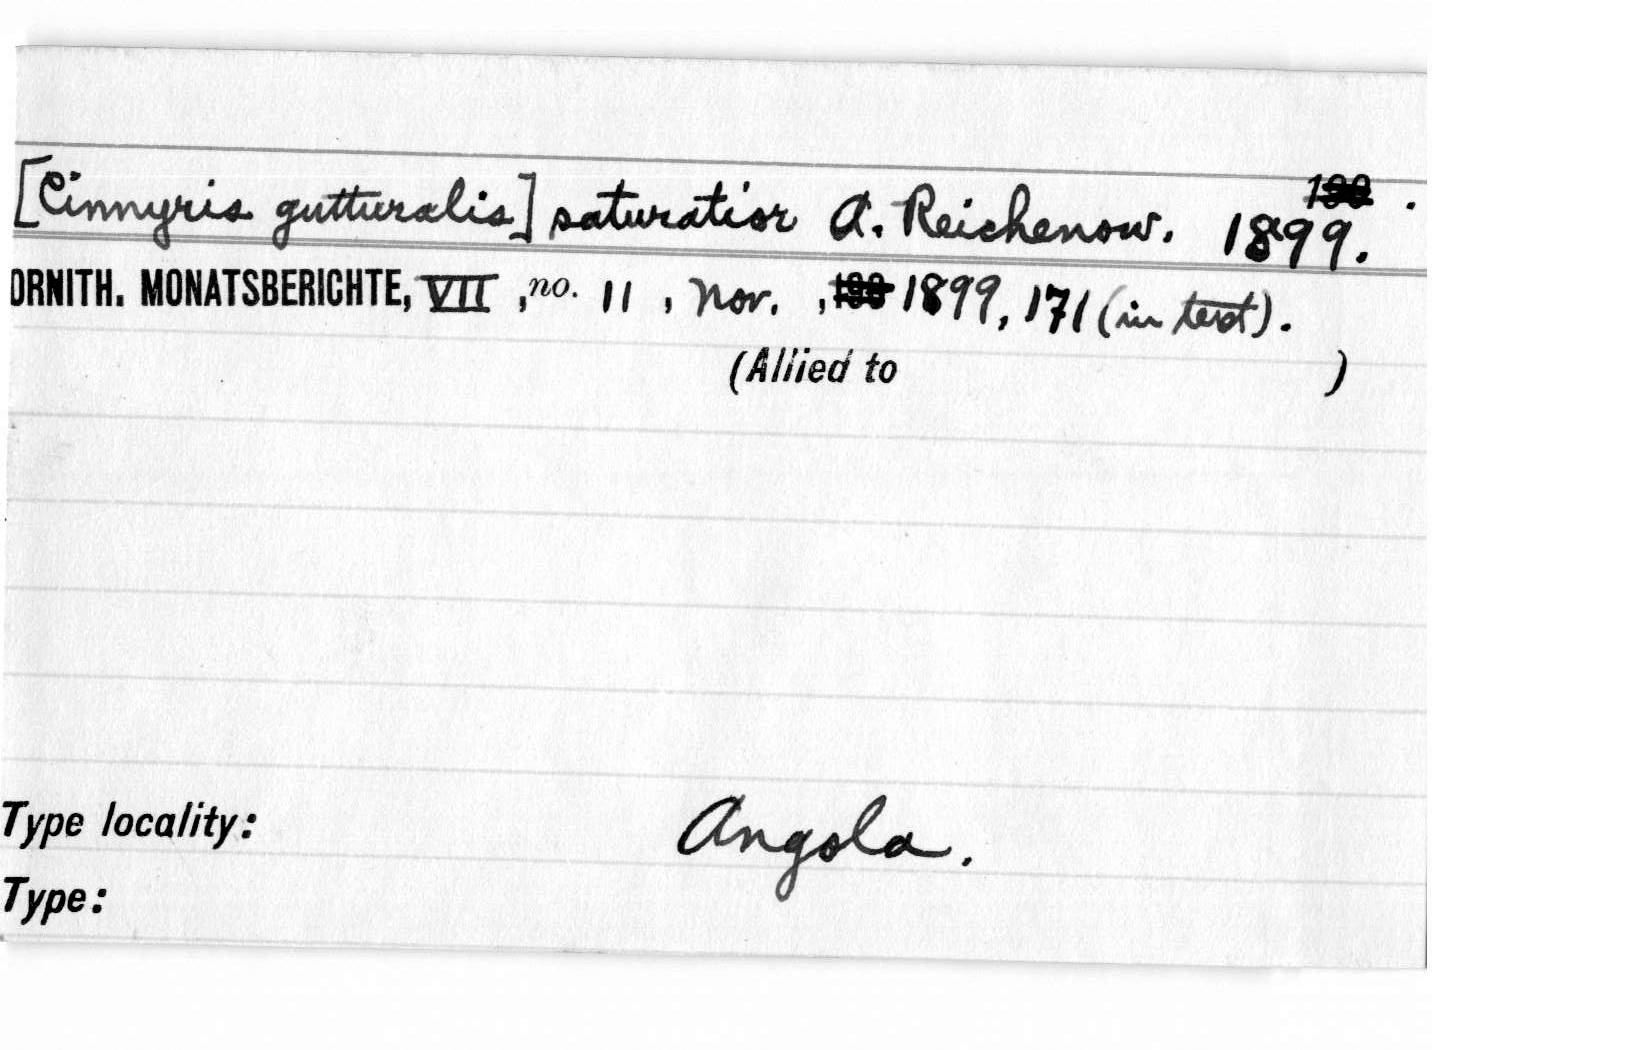 [Cinnyris gutturalis] saturatior A. Reichenow. 1899.
ORNITH. MONATSBERICHTE, VII, no. 11, Nov., 1899, 171 (in text).
(Allied to )
Type locality: Angola.
Type: